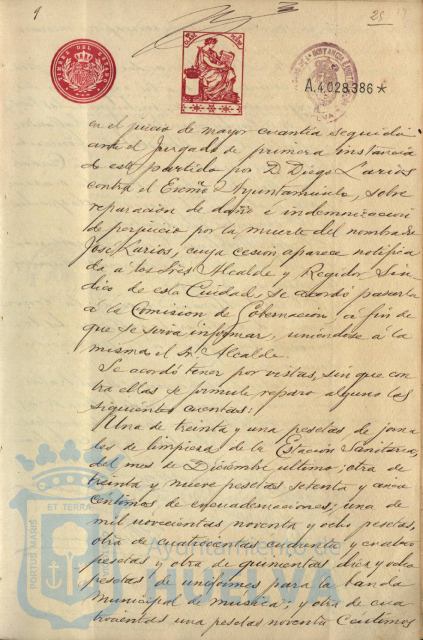 9
25
TIMBRE DEL ESTADO
A.4,028,386*
en el juicio de mayor cuantia seguido
ante el Juzgado de primera instancia
de este partido por D. Diego Larios
contra el Excmo Ayuntamiento, sobre
reparacion de daño e indemnizacion
de perjuicio por la muerte del nombrado
José Larios, cuya cesion aparece notifica
da a los Sres Alcalde y Regidor Sin
dico de esta Ciudad, se acordó pasarla
á la Comision de Gobernacion, a fin de
que se sirva informar, uniendose á la
misma el Sr. Alcalde.
Se acordó tener por vistas, sin que con
tra ellas se formule reparo alguno las
siguientes cuentas:
Una de treinta y una pesetas de jorna
les de limpieza de la Estacion Sanitaria,
del mes de Diciembre ultimo; otra de
treinta y nueve pesetas setenta y cinco
centimos de encuadernaciones; una de
mil novecientas noventa y ocho pesetas,
otra de cuatrocientas cuarenta y cuatro
pesetas y otra de quinientas diez y ocho
pesetas de uniformes para la banda
municipal de música; y otra de cua
trocientas una pesetas noventa centimos
PORTUS MARIS ET TERRAE
Ayuntamiento de
HUELVA